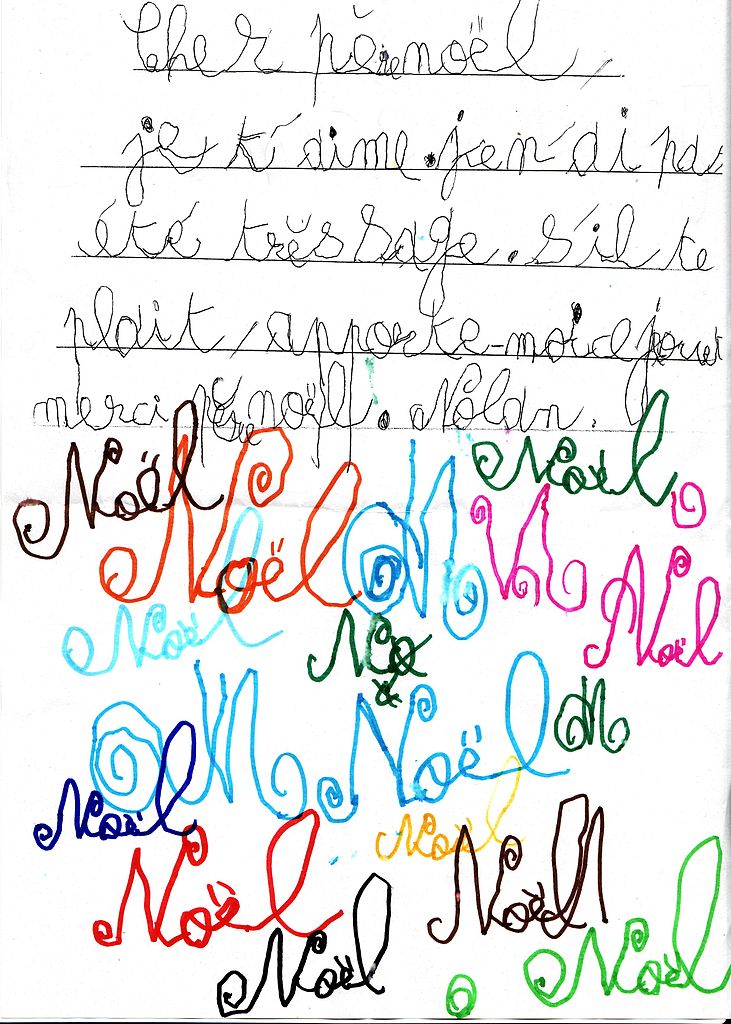 Cher père noël,
je t'aime. j'en'ai pas
été très sage. S'il te
plait, apporte-moi de jouet
merci père noël. Nolan.
Noël
Noël
Noël
N
N
Noël
Noël
No
N
Noël
N
Noël
Noël
Noël
Noël
Noël
Noël